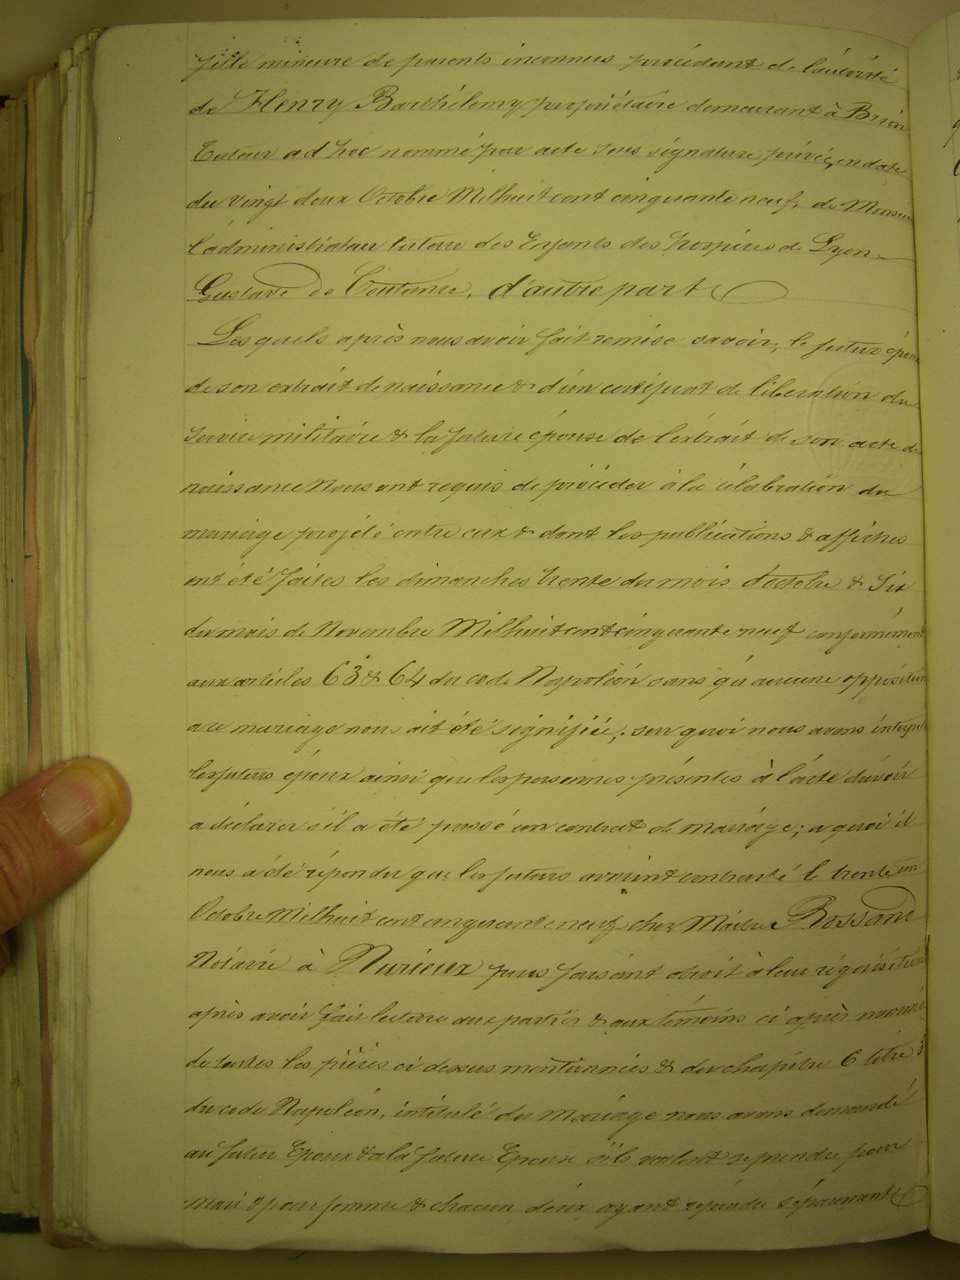 fille mineure de parents inconnus procédant de l'autorité
de Henry Barthélemy propriétaire demeurant à Brion
Tuteur ad hoc nommé par acte sous signature privée, en date
du vingt deux Octobre Mil huit cent cinquante neuf, de Monsieur
l'administrateur tuteur des Enfants des hospices de Lyon
Gustave de Coutance, d'autre part
Lesquels après nous avoir fait remise savoir; le futur époux
de son extrait de naissance & d'un certificat de libération du
service militaire & la future épouse de l'extrait de son acte de
naissance Nous ont requis de procéder à la célébration du
mariage projeté entre eux & dont les publications & affiches
ont été faites les dimanches trente du mois d'octobre & Six
du mois de Novembre Mil huit cent cinquante neuf conformément
aux articles 63 & 64 du code Napoléon sans qu'aucune opposition
a ce mariage nous ait été signifiée; sur quoi nous avons interpelé
les futurs époux ainsi que les personnes présentes à l'acte d'avoir
a déclarer s'il a été passé un contrat de mariage; a quoi il
nous a été répondu que les futurs avaient contracté le trente un
Octobre Mil huit cent cinquante neuf chez Maître Rossand
Notaire à Nurieux puis faisant droit à leur réquisition
après avoir fait lecture aux parties & aux témoins ci après nommés
de toutes les pièces ci dessus mentionnées & du chapitre 6 titre 5
du code Napoléon, intitulé du Mariage nous avons demandé
au futur Epoux & a la future Epouse s'ils veulent se prendre pour
mari & pour femme & chacun d'eux ayant répondu séparément